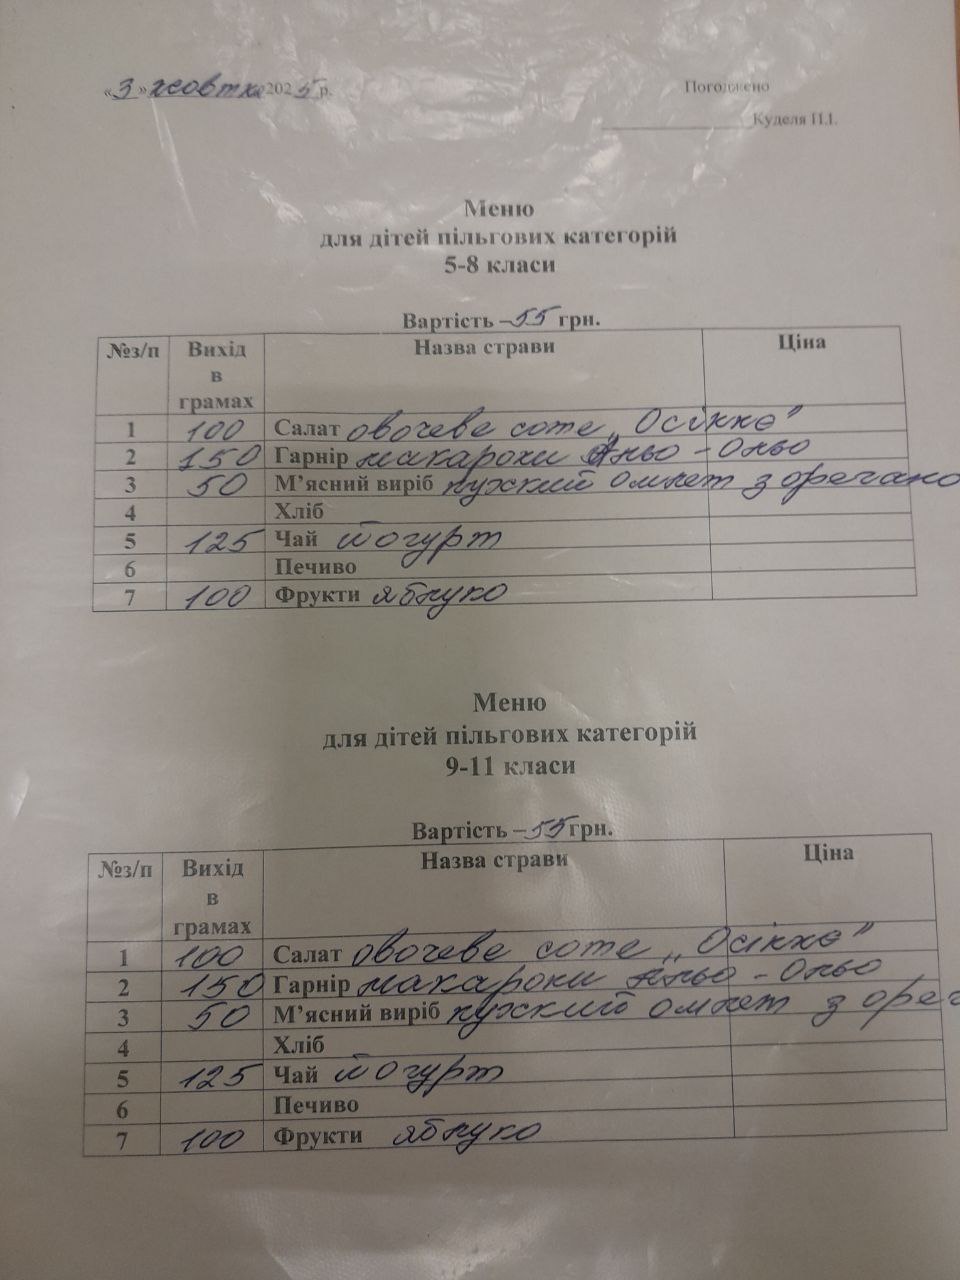 «3» жовтня 2025 р. Погоджено
Куделя П.І.
Меню
для дітей пільгових категорій
5-8 класи
Вартість – 55 грн.
№з/п Вихід в грамах Назва страви Ціна
1 100 Салат овочеве соте „Осіннє”
2 150 Гарнір макарони Альо - Ольо
3 50 М’ясний виріб пухкий омлет з орегано
4 Хліб
5 125 Чай йогурт
6 Печиво
7 100 Фрукти яблуко
Меню
для дітей пільгових категорій
9-11 класи
Вартість – 55 грн.
№з/п Вихід в грамах Назва страви Ціна
1 100 Салат овочеве соте „Осіннє”
2 150 Гарнір макарони Альо - Ольо
3 50 М’ясний виріб пухкий омлет з орег
4 Хліб
5 125 Чай йогурт
6 Печиво
7 100 Фрукти яблуко